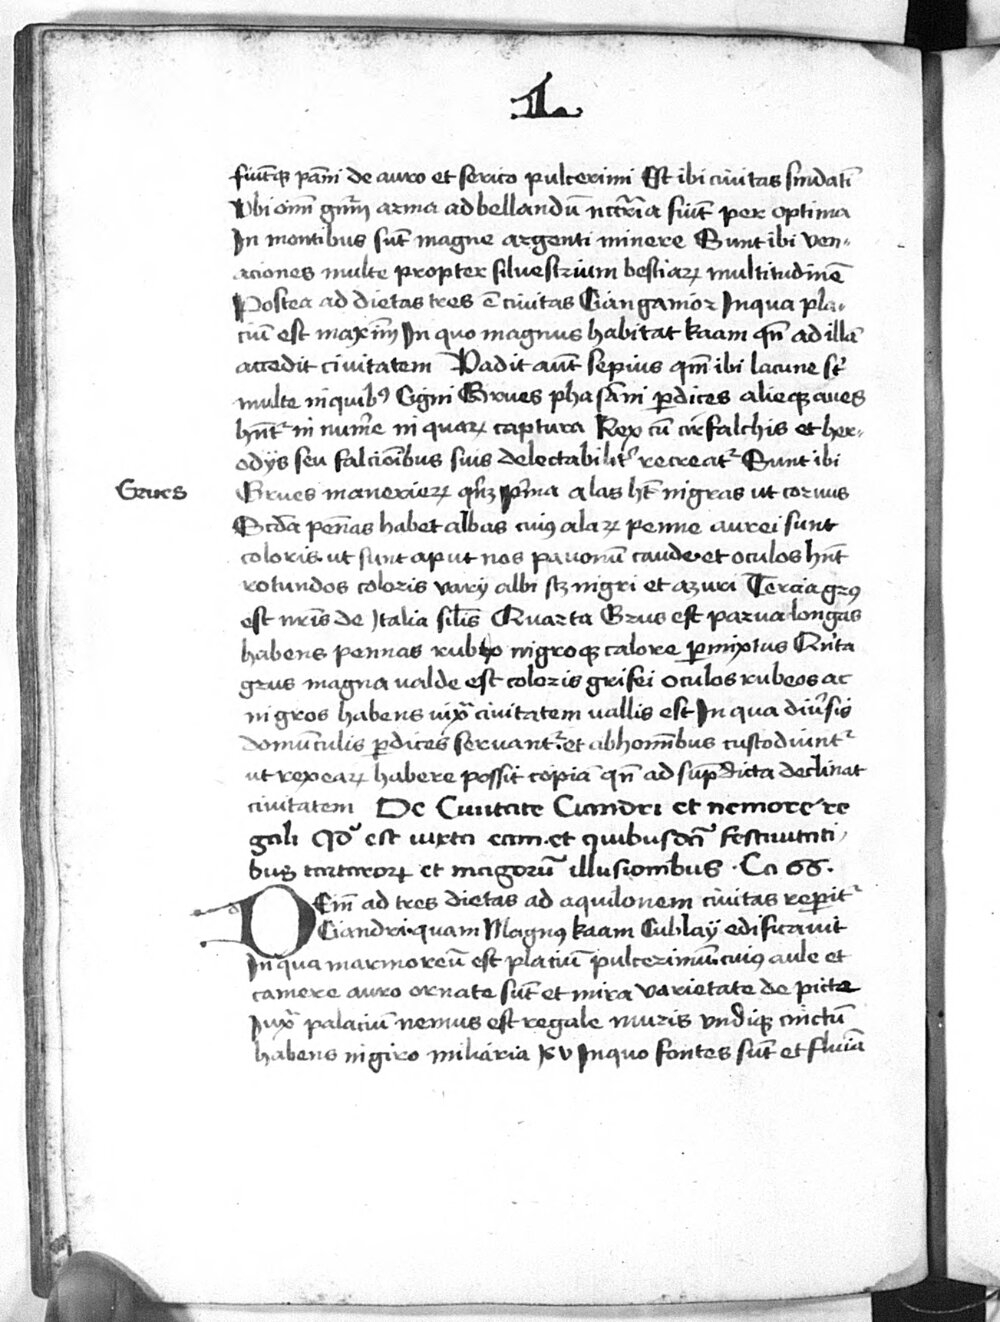 1
fiūtqꝫ pāni de auro et serico pulcerimi Est ibi ciuitas sindati
Vbi om̄i gn̄m arma ad bellandū nccr̄ia fiūt per optima
In montibus sūt magne argenti minere Sunt ibi ven-
aciones multe propter siluestrium bestiaꝝ multitudinē
Postea ad dietas tres ē ciuitas Ciangamor In qua pla-
ciū est maxim̄ In quo magnus habitat kaam qn̄ ad illā
accedit ciuitatem Vadit aūt sepius qm̄ ibi lacune st̄
multe in quibꝰ Cigni Grues phasāni ꝑdices alieqꝫ aues
hn̄tᷣ in num̄e in quaꝝ captura Rex cū cirfalchis et her-
odijs seu falcionībus suis delectabilitᷣ recreatᷣ Sunt ibi
Grues
Grues manerieꝝ qn̄qꝫ pͥma alas ht̄ nigras ut coruus
Scd̄a pēnas habet albas cuiꝰ alaꝝ penne aurei sunt
coloris ut sunt aput nos pauonū caude et oculos hn̄t
rotundos coloris varij albi sꝫ nigri et azuri Tercia grꝰ
est nr̄is de Italia sil̄is Quarta Grus est parua longas
habens pennas rubeo nigroqꝫ calore ꝑmixtus Qn̄ta
grus magna ualde est coloris grisei oculos rubeos ac
nigros habens iuxᵃ ciuitatem uallis est In qua diūsis
domūculis ꝑdices seruantᷣ et ab hom̄ībus custodiuntᷣ
ut rex eaꝝ habere possit copiā qn̄ ad sup̄dicta declinat
ciuitatem De Ciuitate Ciandri et nemore re
gali qd̄ est iuxta eam et quibusdā festiuitati
bus tartaroꝝ et magorū illusionibus · Ca 66.
Dein̄ ad tres dietas ad aquilonem ciuitas reꝑitᷣ
Ciandri quam Magnꝰ kaam Cublaÿ edificauit
In qua marmoreū est placiū pulcerimū cuiꝰ aule et
camere auro ornate sūt et mira varietate de picte
Iuxᵃ palaciū nemus est regale muris vndiqꝫ cīnctū
habens in giro miliaria xv In quo fontes sūt et fluīa